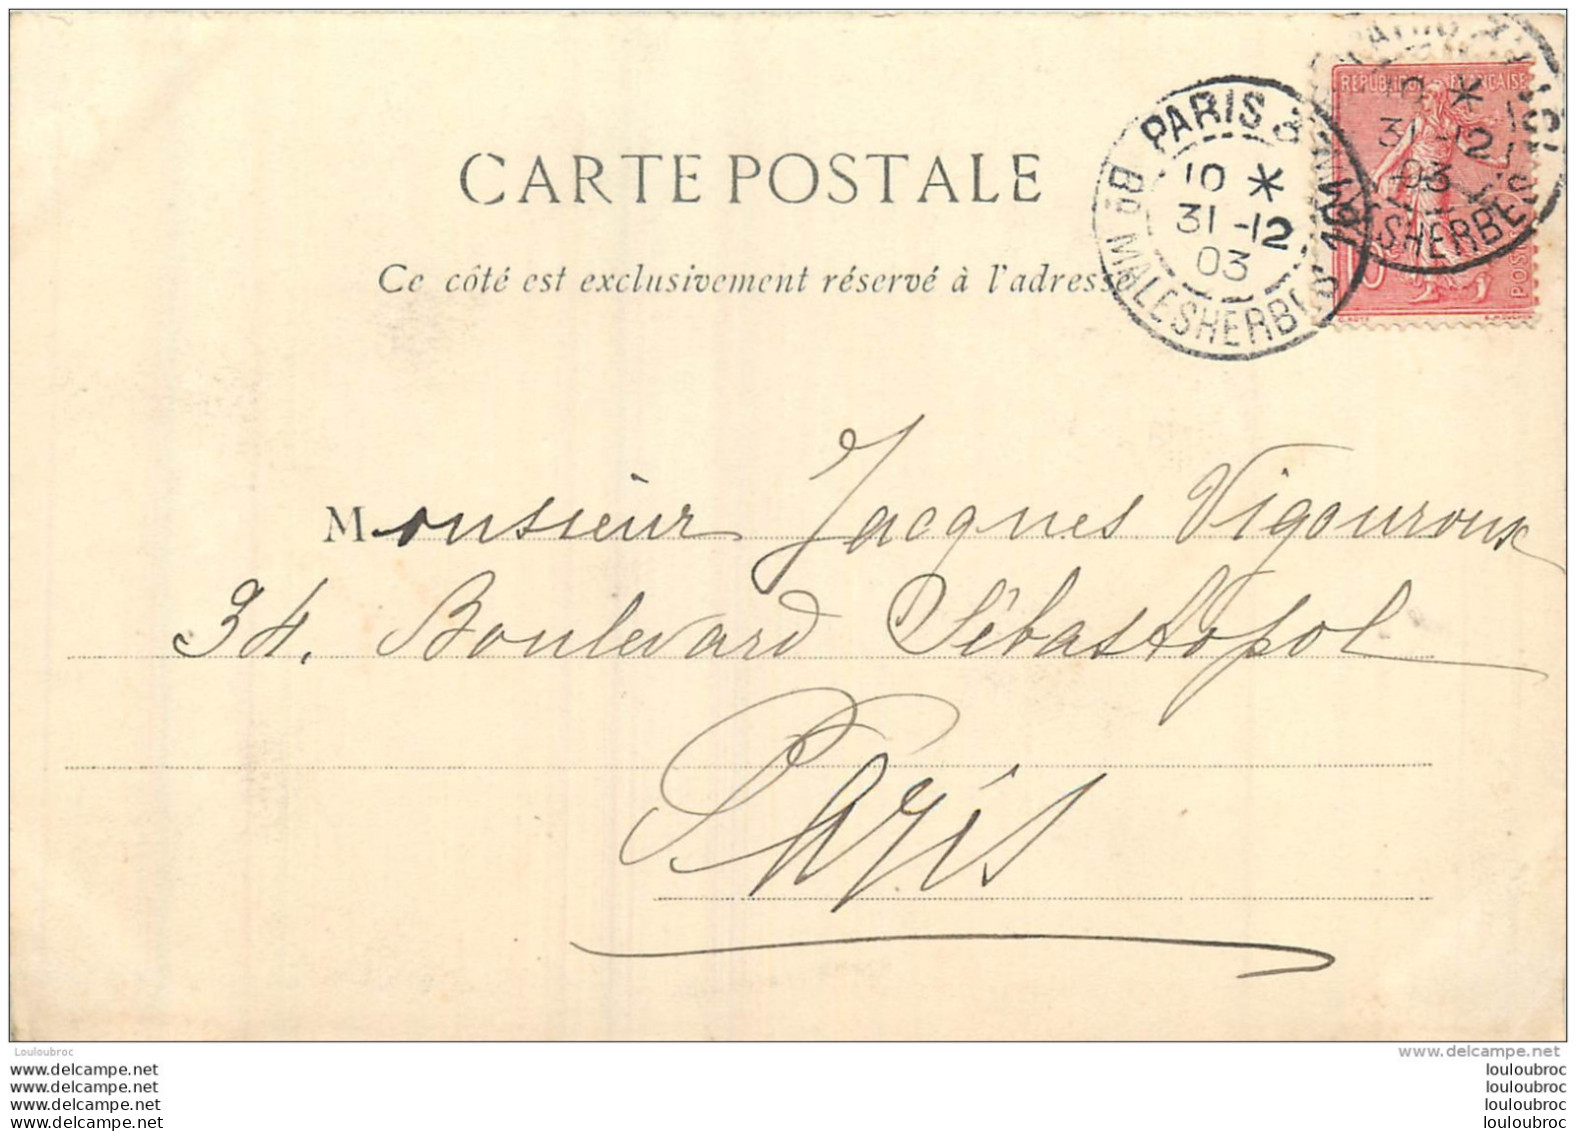 CARTE POSTALE
Ce côté est exclusivement réservé à l'adresse
PARIS
Bd MALESHERBES
10 *
31 -12
03
REPUBLIQUE FRANÇAISE
10 *
31 -12
03
SHERBES
10
POSTES
Monsieur Jacques Vigouroux
34. Boulevard Sébastopol
Paris
Louloubroc
www.delcampe.net
www.delcampe.net
www.delcampe.net
www.delcampe.net
www.delcampe.net
louloubroc
louloubroc
louloubroc
louloubroc